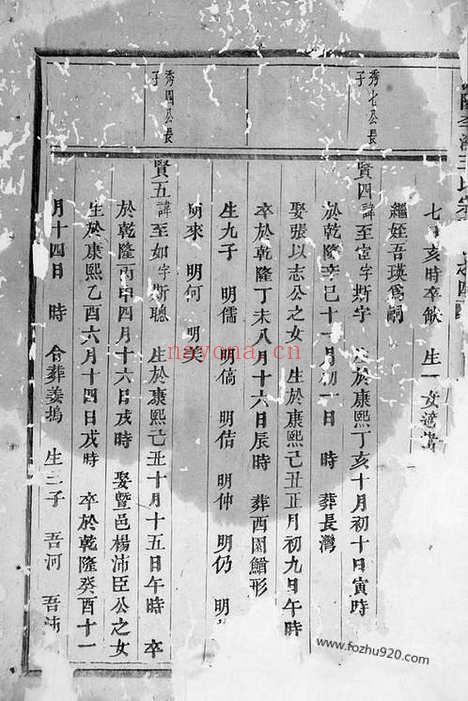 七 亥時卒缺 生一女適
繼姪吾瑛爲嗣
秀七公長子
賢四 諱至 字斯字 生於康熙丁亥十月初十日寅時
於乾隆辛巳十一月初一日 時 葬長灣
娶張以志公之女 生於康熙己丑正月初九日午時
卒於乾隆丁未八月十六日辰時 葬酉園鰌形
生九子 明儒 明 明佶 明仲 明仍 明
明來 明何 明
秀四公長子
賢五 諱至如字斯聰 生於康熙己丑十月十五日午時 卒
於乾隆丙申四月十六日戌時 娶暨邑楊沛臣公之女
生於康熙乙酉六月十四日戌時 卒於乾隆癸酉十一
月十四日 時 合葬 塢 生二子 吾河 吾沛
nayona.cn
www.fozhu920.com